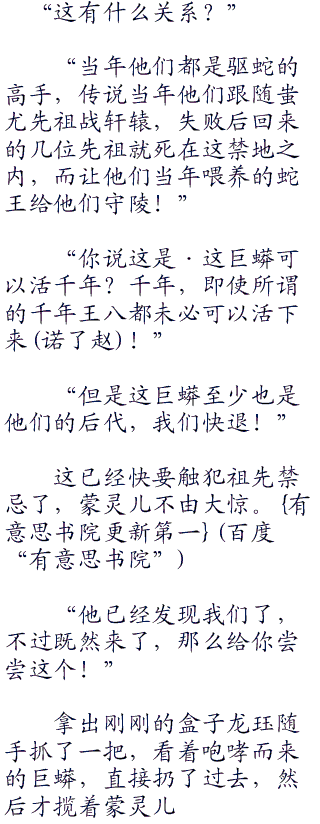 “这有什么关系？”
“当年他们都是驱蛇的
高手，传说当年他们跟随蚩
尤先祖战轩辕，失败后回来
的几位先祖就死在这禁地之
内，而让他们当年喂养的蛇
王给他们守陵！”
“你说这是·这巨蟒可
以活千年？千年，即使所谓
的千年王八都未必可以活下
来(诺了赵)！”
“但是这巨蟒至少也是
他们的后代，我们快退！”
这已经快要触犯祖先禁
忌了，蒙灵儿不由大惊。{有
意思书院更新第一}(百度
“有意思书院”)
“他已经发现我们了，
不过既然来了，那么给你尝
尝这个！”
拿出刚刚的盒子龙珏随
手抓了一把，看着咆哮而来
的巨蟒，直接扔了过去，然
后才揽着蒙灵儿